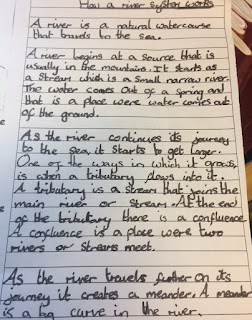 How a river system works
A river is a natural watercourse
that travels to the sea.
A river begins at a source that is
usually in the mountains. It starts as
a Stream which is a small narrow river.
The water comes out of a spring and
that is a place were water comes out
of the ground.
As the river continues its journey
to the sea, it starts to get larger.
One of the ways in which it grows,
is when a tributary flows into it.
A tributary is a stream that joins the
main river or stream. At the end
of the tributary there is a confluence
A confluence is a place were two
rivers or streams meet.
As the river travels further on its
journey it creates a meander. A meander
is a big curve in the river.